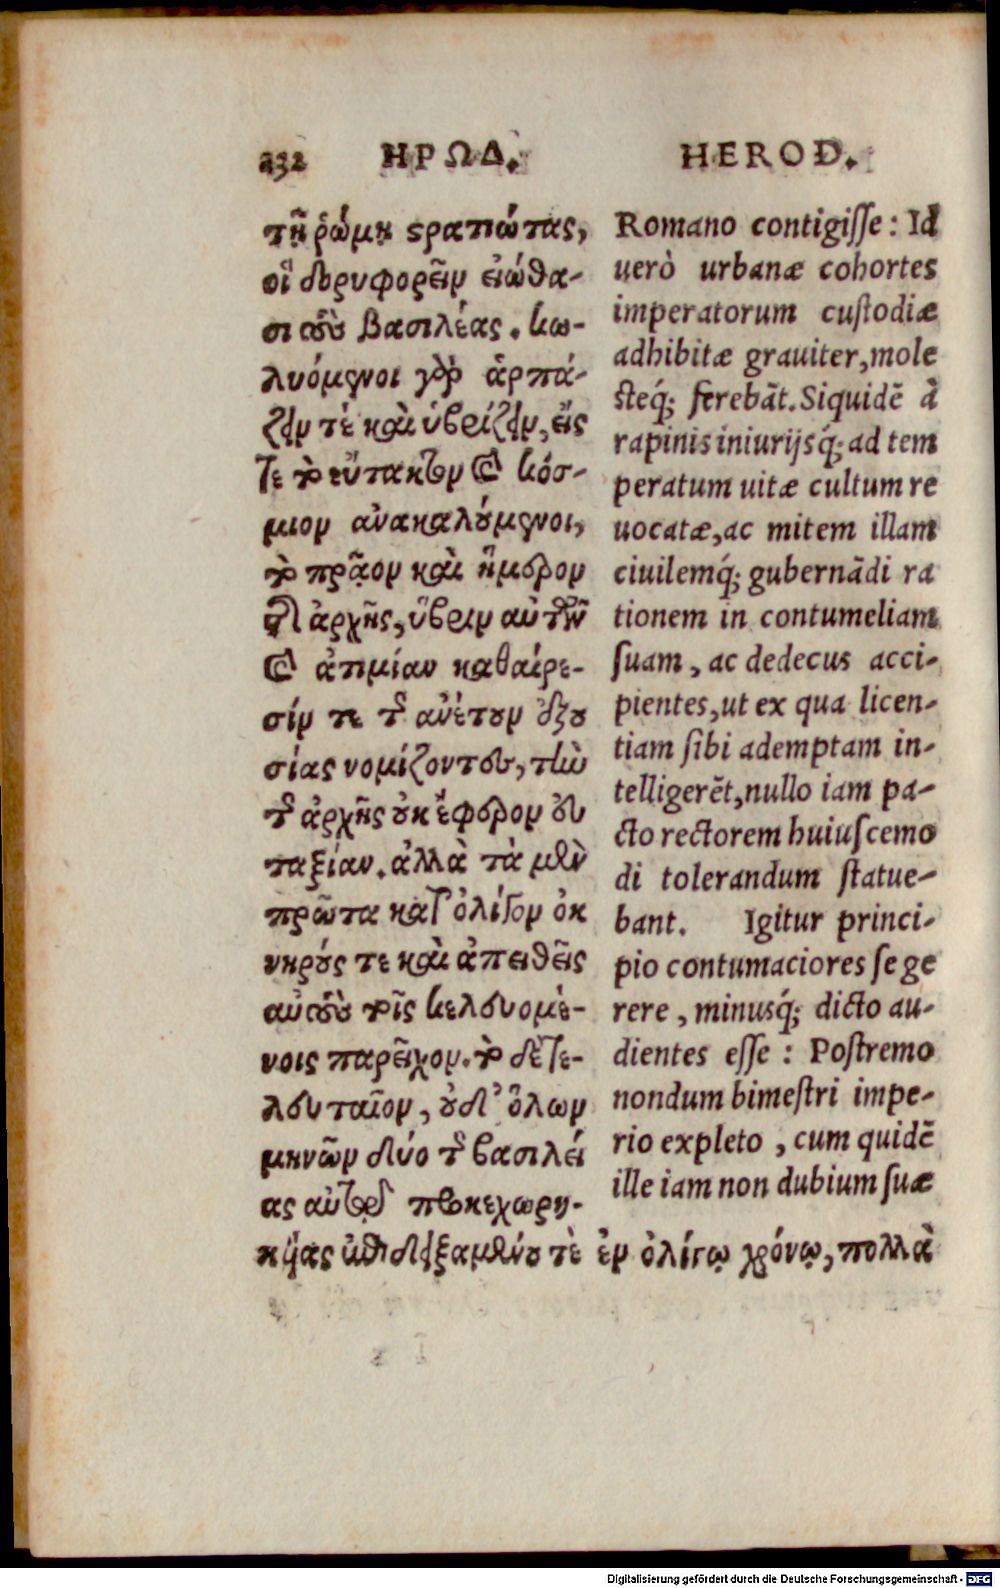 232 ΗΡΩΔ. HEROD.
τῇ ῥώμῃ στρατιώτας,
οἳ δορυφορεῖν εἰώθα-
σι τοὺς βασιλέας. κω-
λυόμενοι γὰρ ἁρπά-
ζειν τὲ καὶ ὑβρίζειν, εἴς
τε τὸ εὔτακτον καὶ κόσ-
μιον ἀνακαλούμενοι,
τὸ πρᾷον καὶ ἥμερον
τῆς ἀρχῆς, ὕβριν αὐτῶν
καὶ ἀτιμίαν καθαίρε-
σίν τε τῆς ἀνέτου ἐξου
σίας νομίζοντες, τὴν
τῆς ἀρχῆς οὐκ ἔφερον εὐ
ταξίαν. ἀλλὰ τὰ μὲν
πρῶτα κατ' ὀλίγον ὀκ
νηρούς τε καὶ ἀπειθεῖς
αὑτοὺς τοῖς κελευομέ-
νοις παρεῖχον. τὸ δὲ τε-
λευταῖον, οὐδ' ὅλων
μηνῶν δύο τῆς βασιλεί
ας αὐτῷ προκεχωρη-
κείας ἐπιδειξαμένου τὲ ἐν ὀλίγῳ χρόνῳ, πολλὰ
Romano contigisse: Id
uerò urbanæ cohortes
imperatorum custodiæ
adhibitæ grauiter, mole
steq́; ferebāt. Siquidē à
rapinis iniurijsq́; ad tem
peratum uitæ cultum re
uocatæ, ac mitem illam
ciuilemq́; gubernādi ra
tionem in contumeliam
suam, ac dedecus acci-
pientes, ut ex qua licen-
tiam sibi ademptam in-
telligerēt, nullo iam pa-
cto rectorem huiuscemo
di tolerandum statue-
bant. Igitur princi-
pio contumaciores se ge
rere, minusq́; dicto au-
dientes esse: Postremo
nondum bimestri impe-
rio expleto, cum quidē
ille iam non dubium suæ
Digitalisierung gefördert durch die Deutsche Forschungsgemeinschaft - DFG